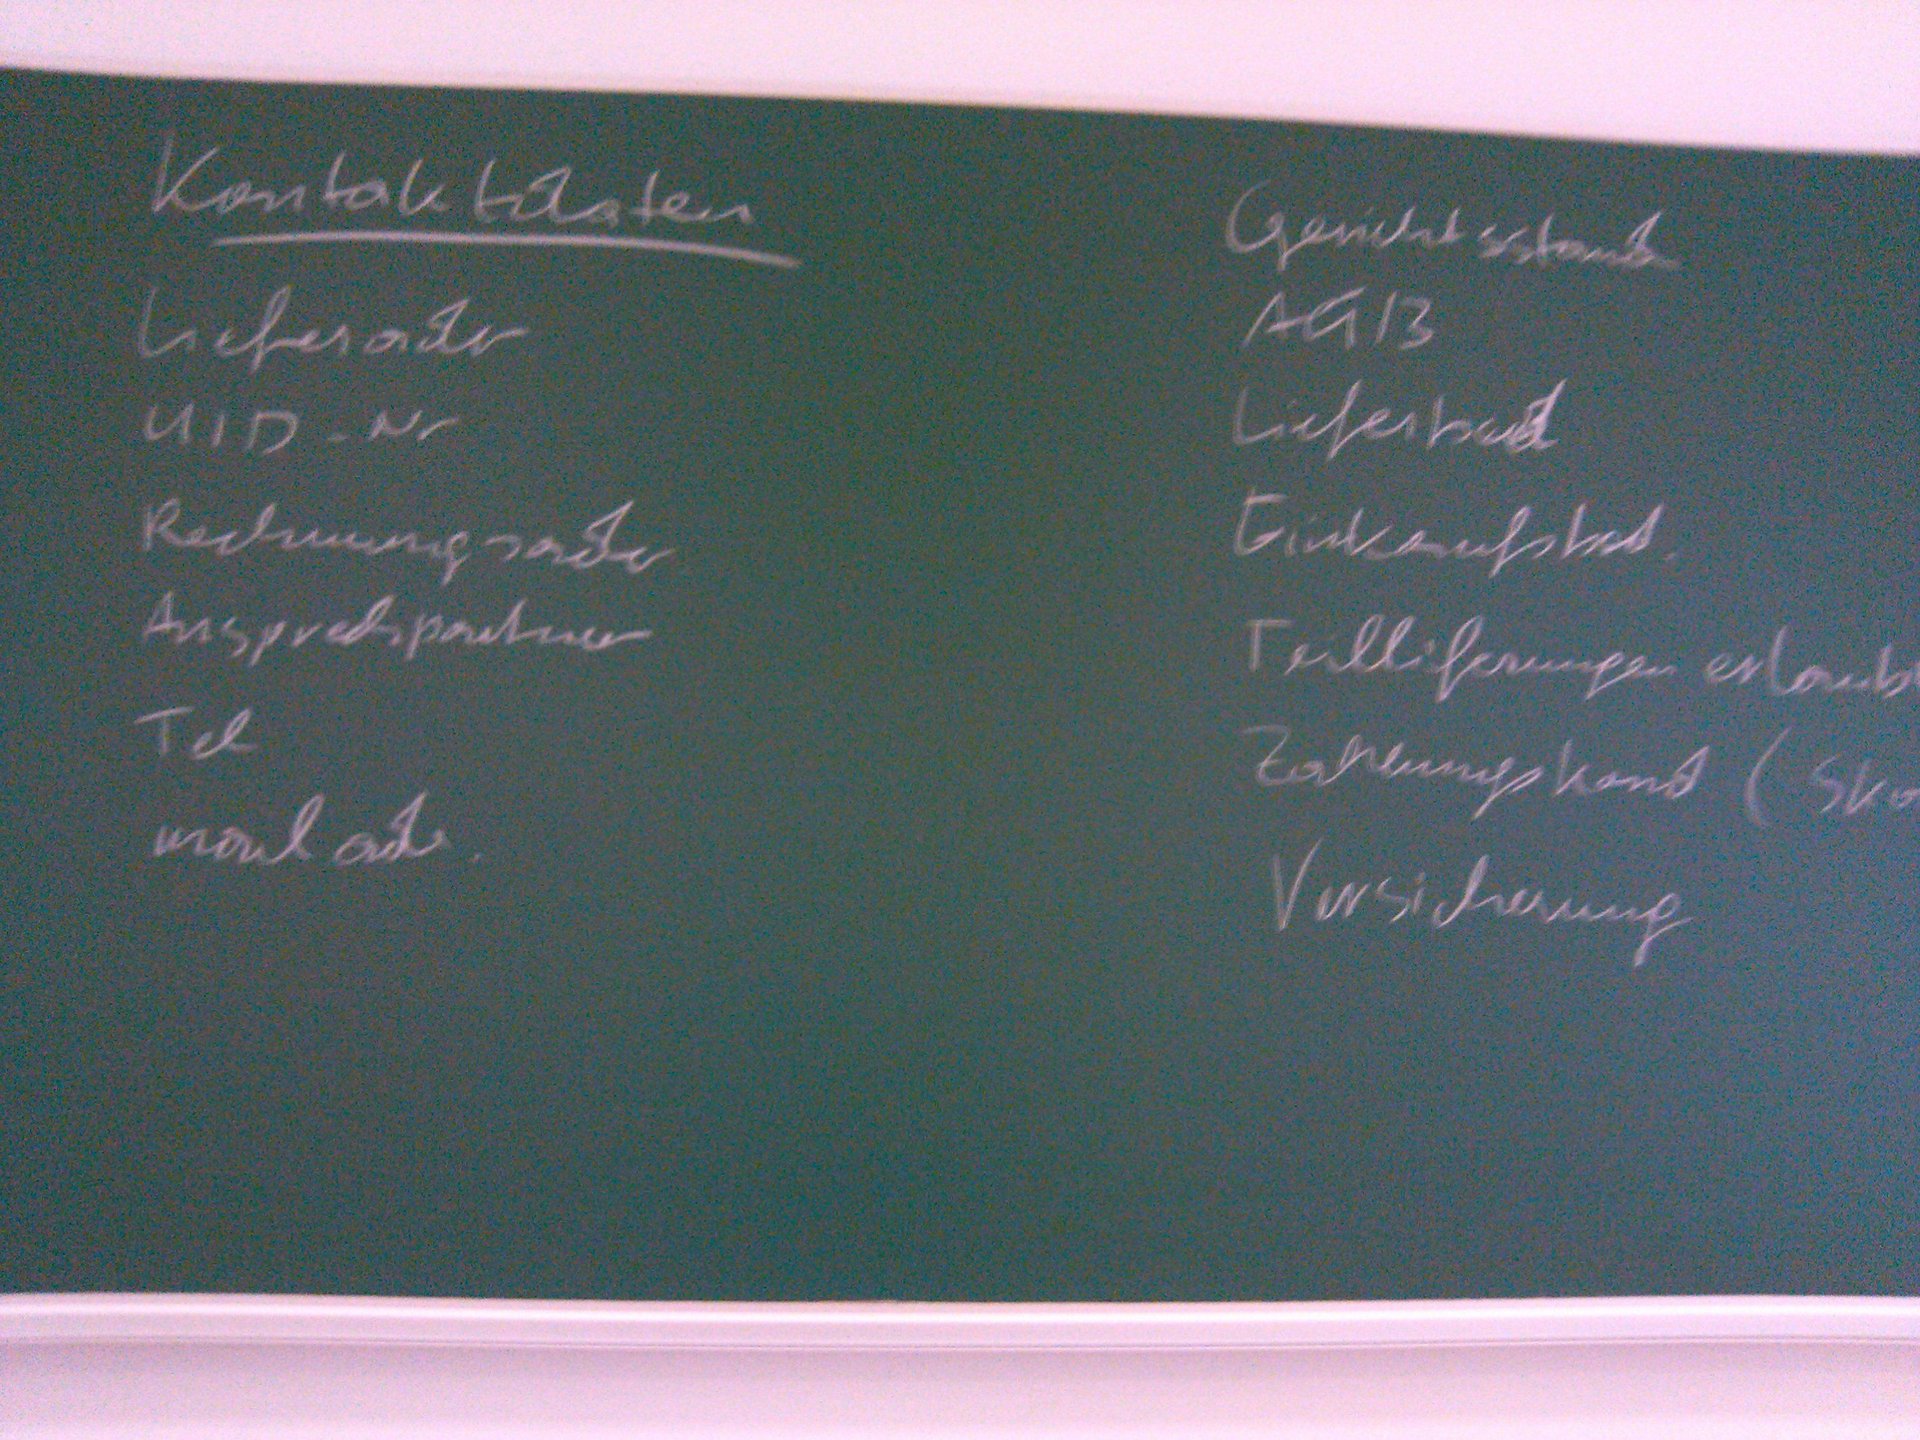 Kontaktdaten
Lieferadr
UID-Nr
Rechnungsadr
Ansprechpartner
Tel
mail adr.
Gerichtsstand
AGB
Lieferbed
Einkaufsbed.
Teilliferungen erlaubt
Zahlungskond (Sko
Versicherung